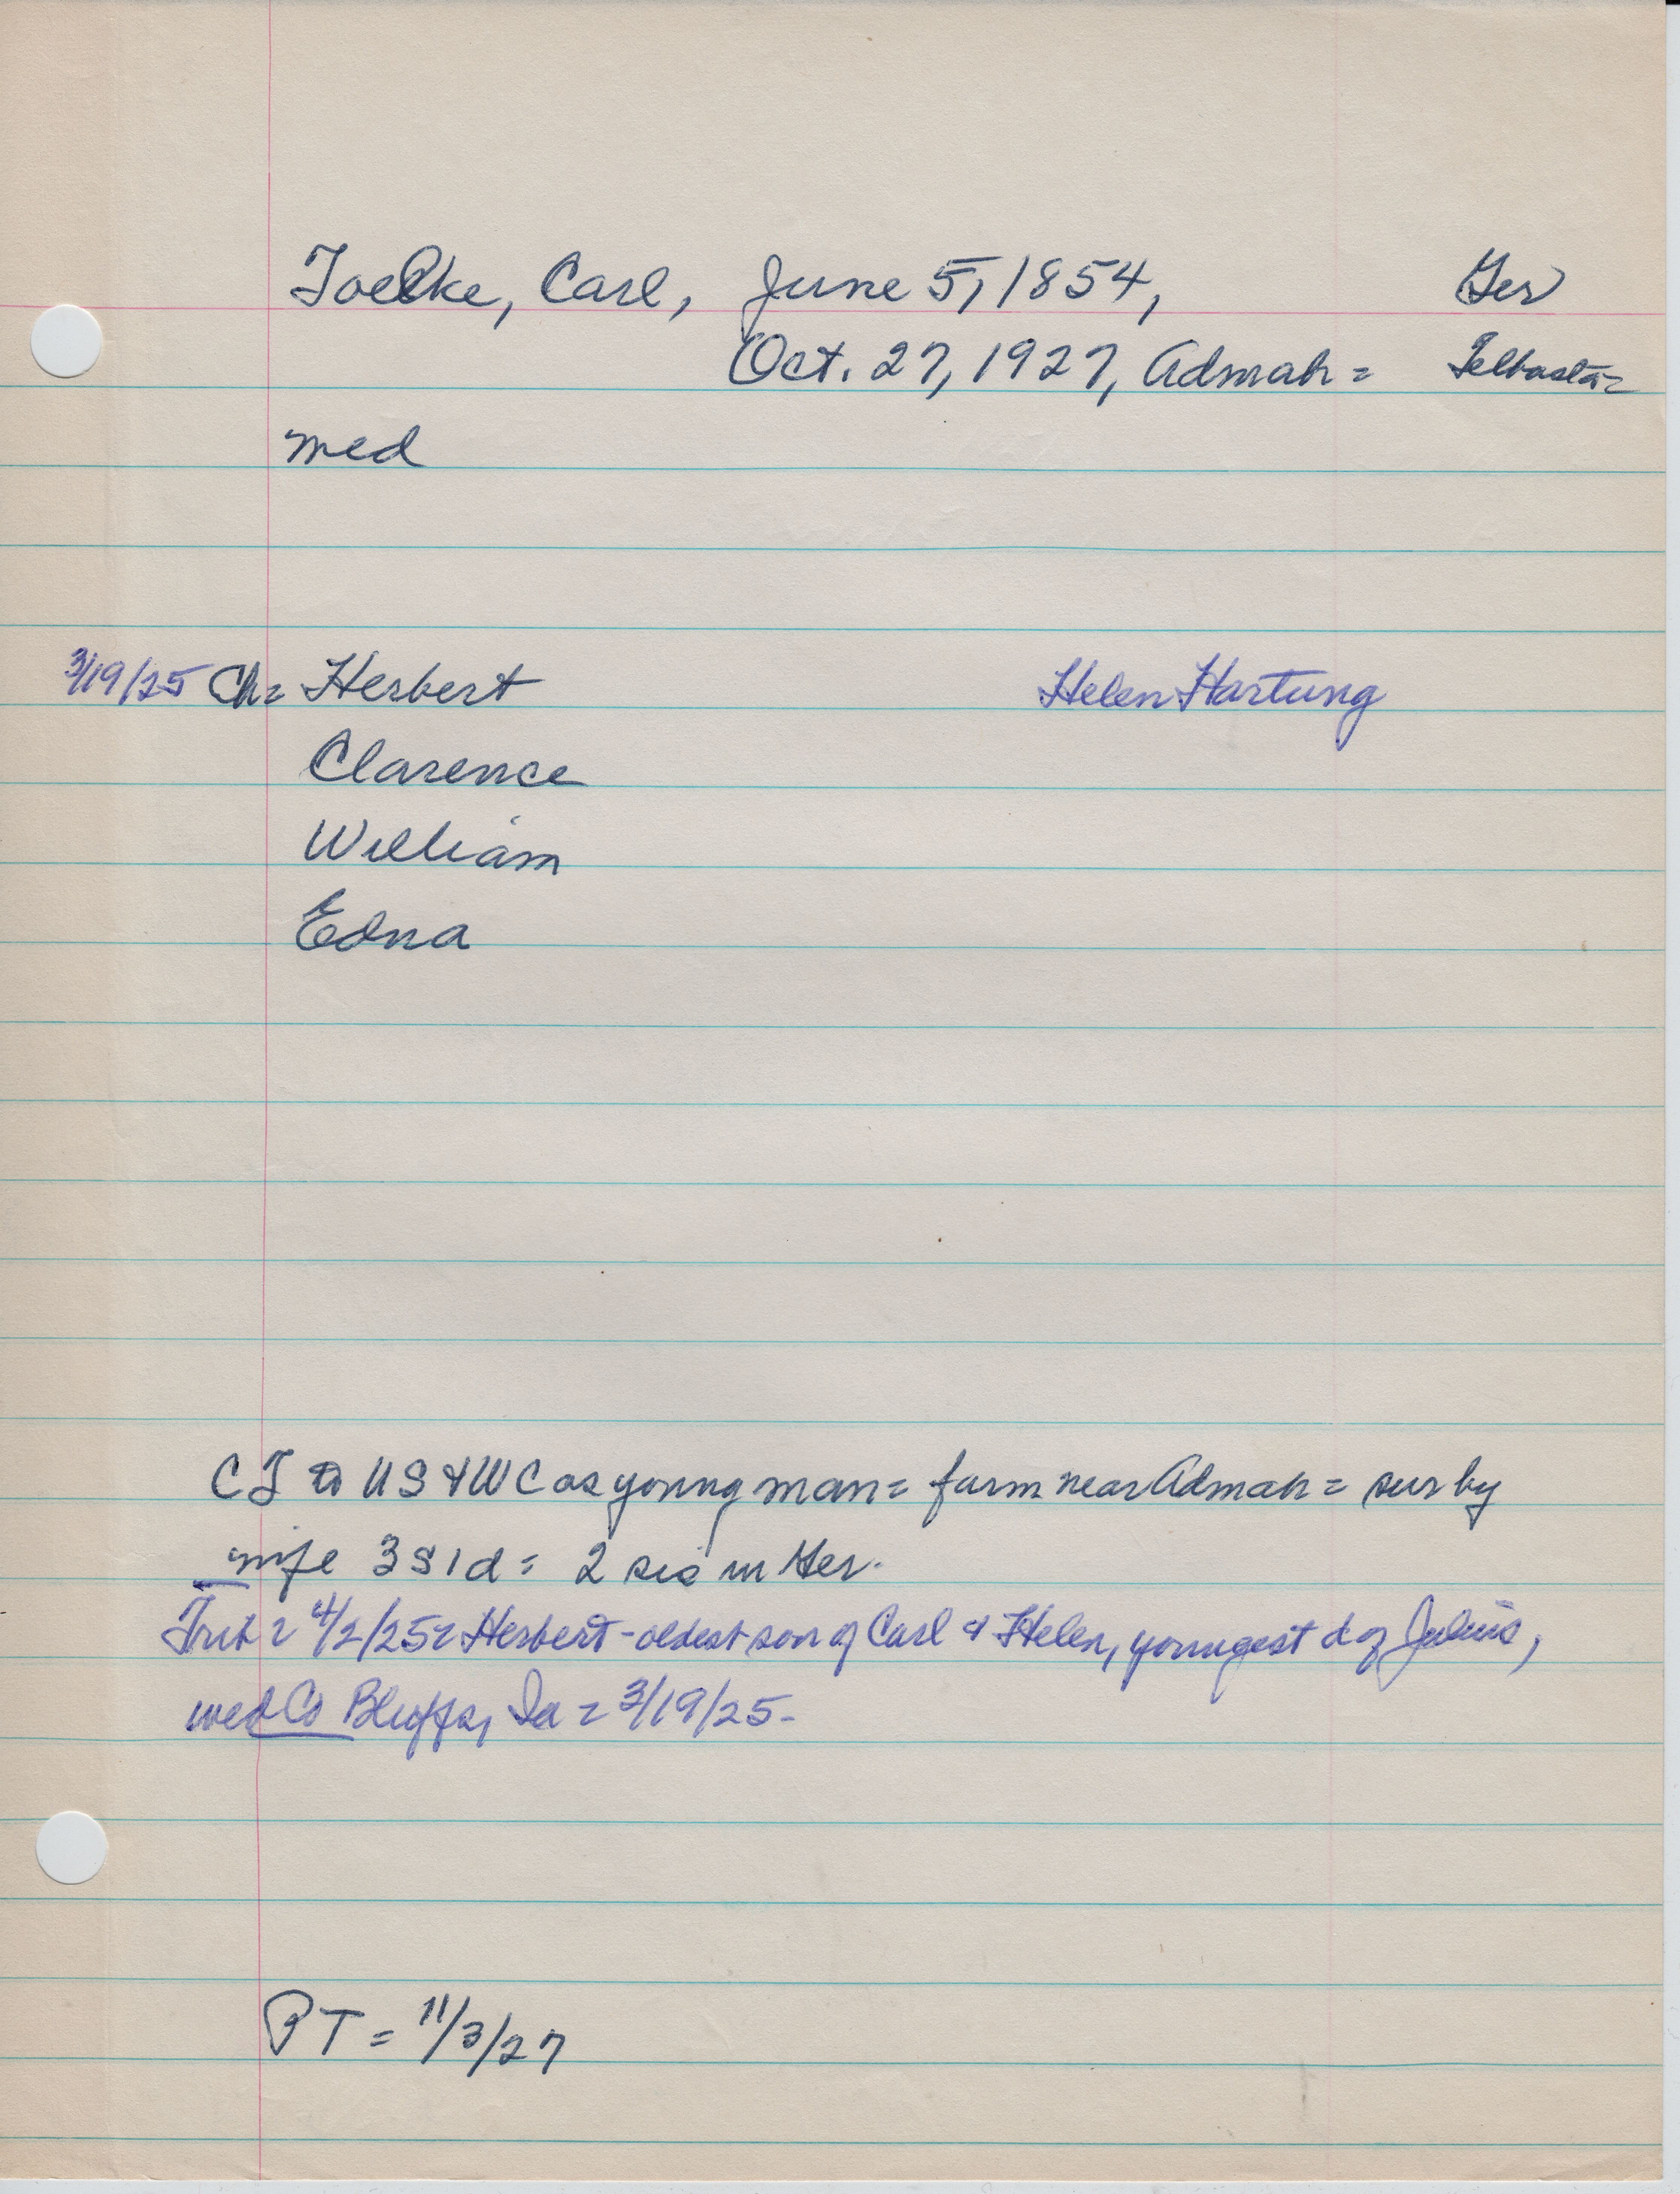 Toelke, Carl, June 5, 1854, Ger
Oct. 27, 1927, Admah =
med
3/19/25 Ch= Herbert Helen Hartung
Clarence
William
Edna
CT to US & WC as young man = farm near Admah = sur by
wife 3 S 1 d = 2 sis in Ger.
Trib = 4/2/25 = Herbert - oldest son of Carl & Helen, youngest d of Julius,
wed Co Bluffs, Ia = 3/19/25 -
PT = 11/3/27